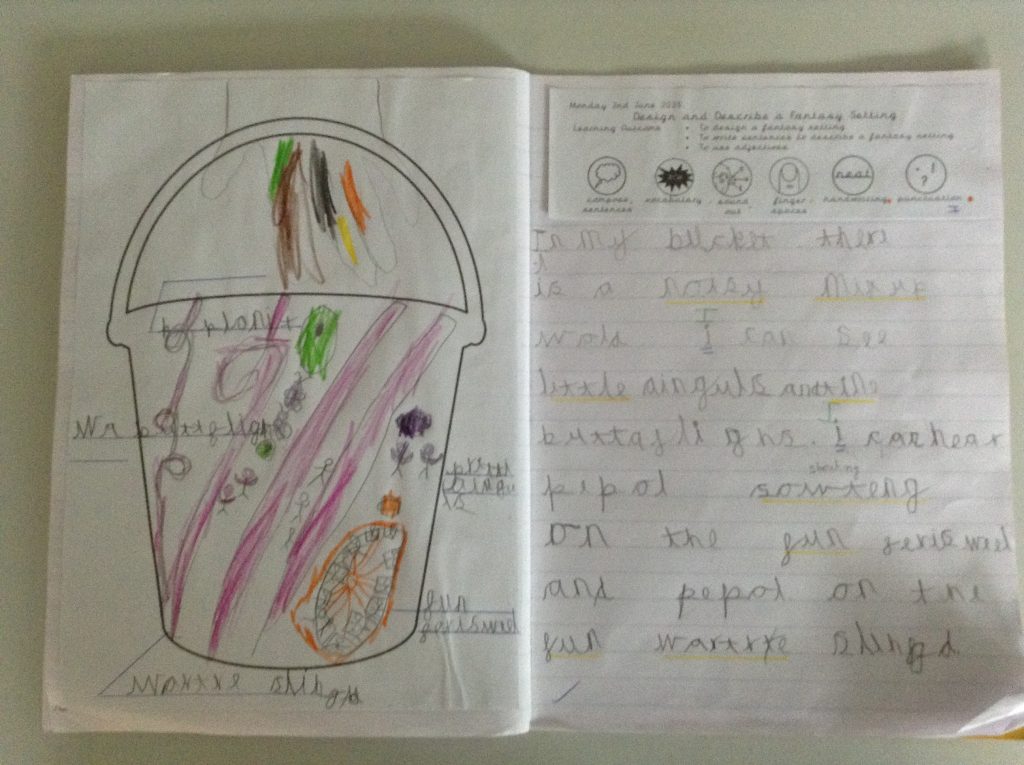 p planit
Wn buttefligh
pritt
aingu
ls
fun
ferisweel
Wattre slingd
Monday 2nd June 2025
Design and Describe a Fantasy Setting
Learning Outcome
• To design a fantasy setting
• To write sentences to describe a fantasy setting
• To use adjectives
compose sentences
vocabulary
sound out
finger spaces
neat
handwriting
punctuation
In my bucket there
is a noisy Mixup
wold I can see
little ainguls and tine
buttaflighs. I can hear
shouting
pepol sowteng
on the fun feris weel
and pepol on the
fun wartrte slingd.